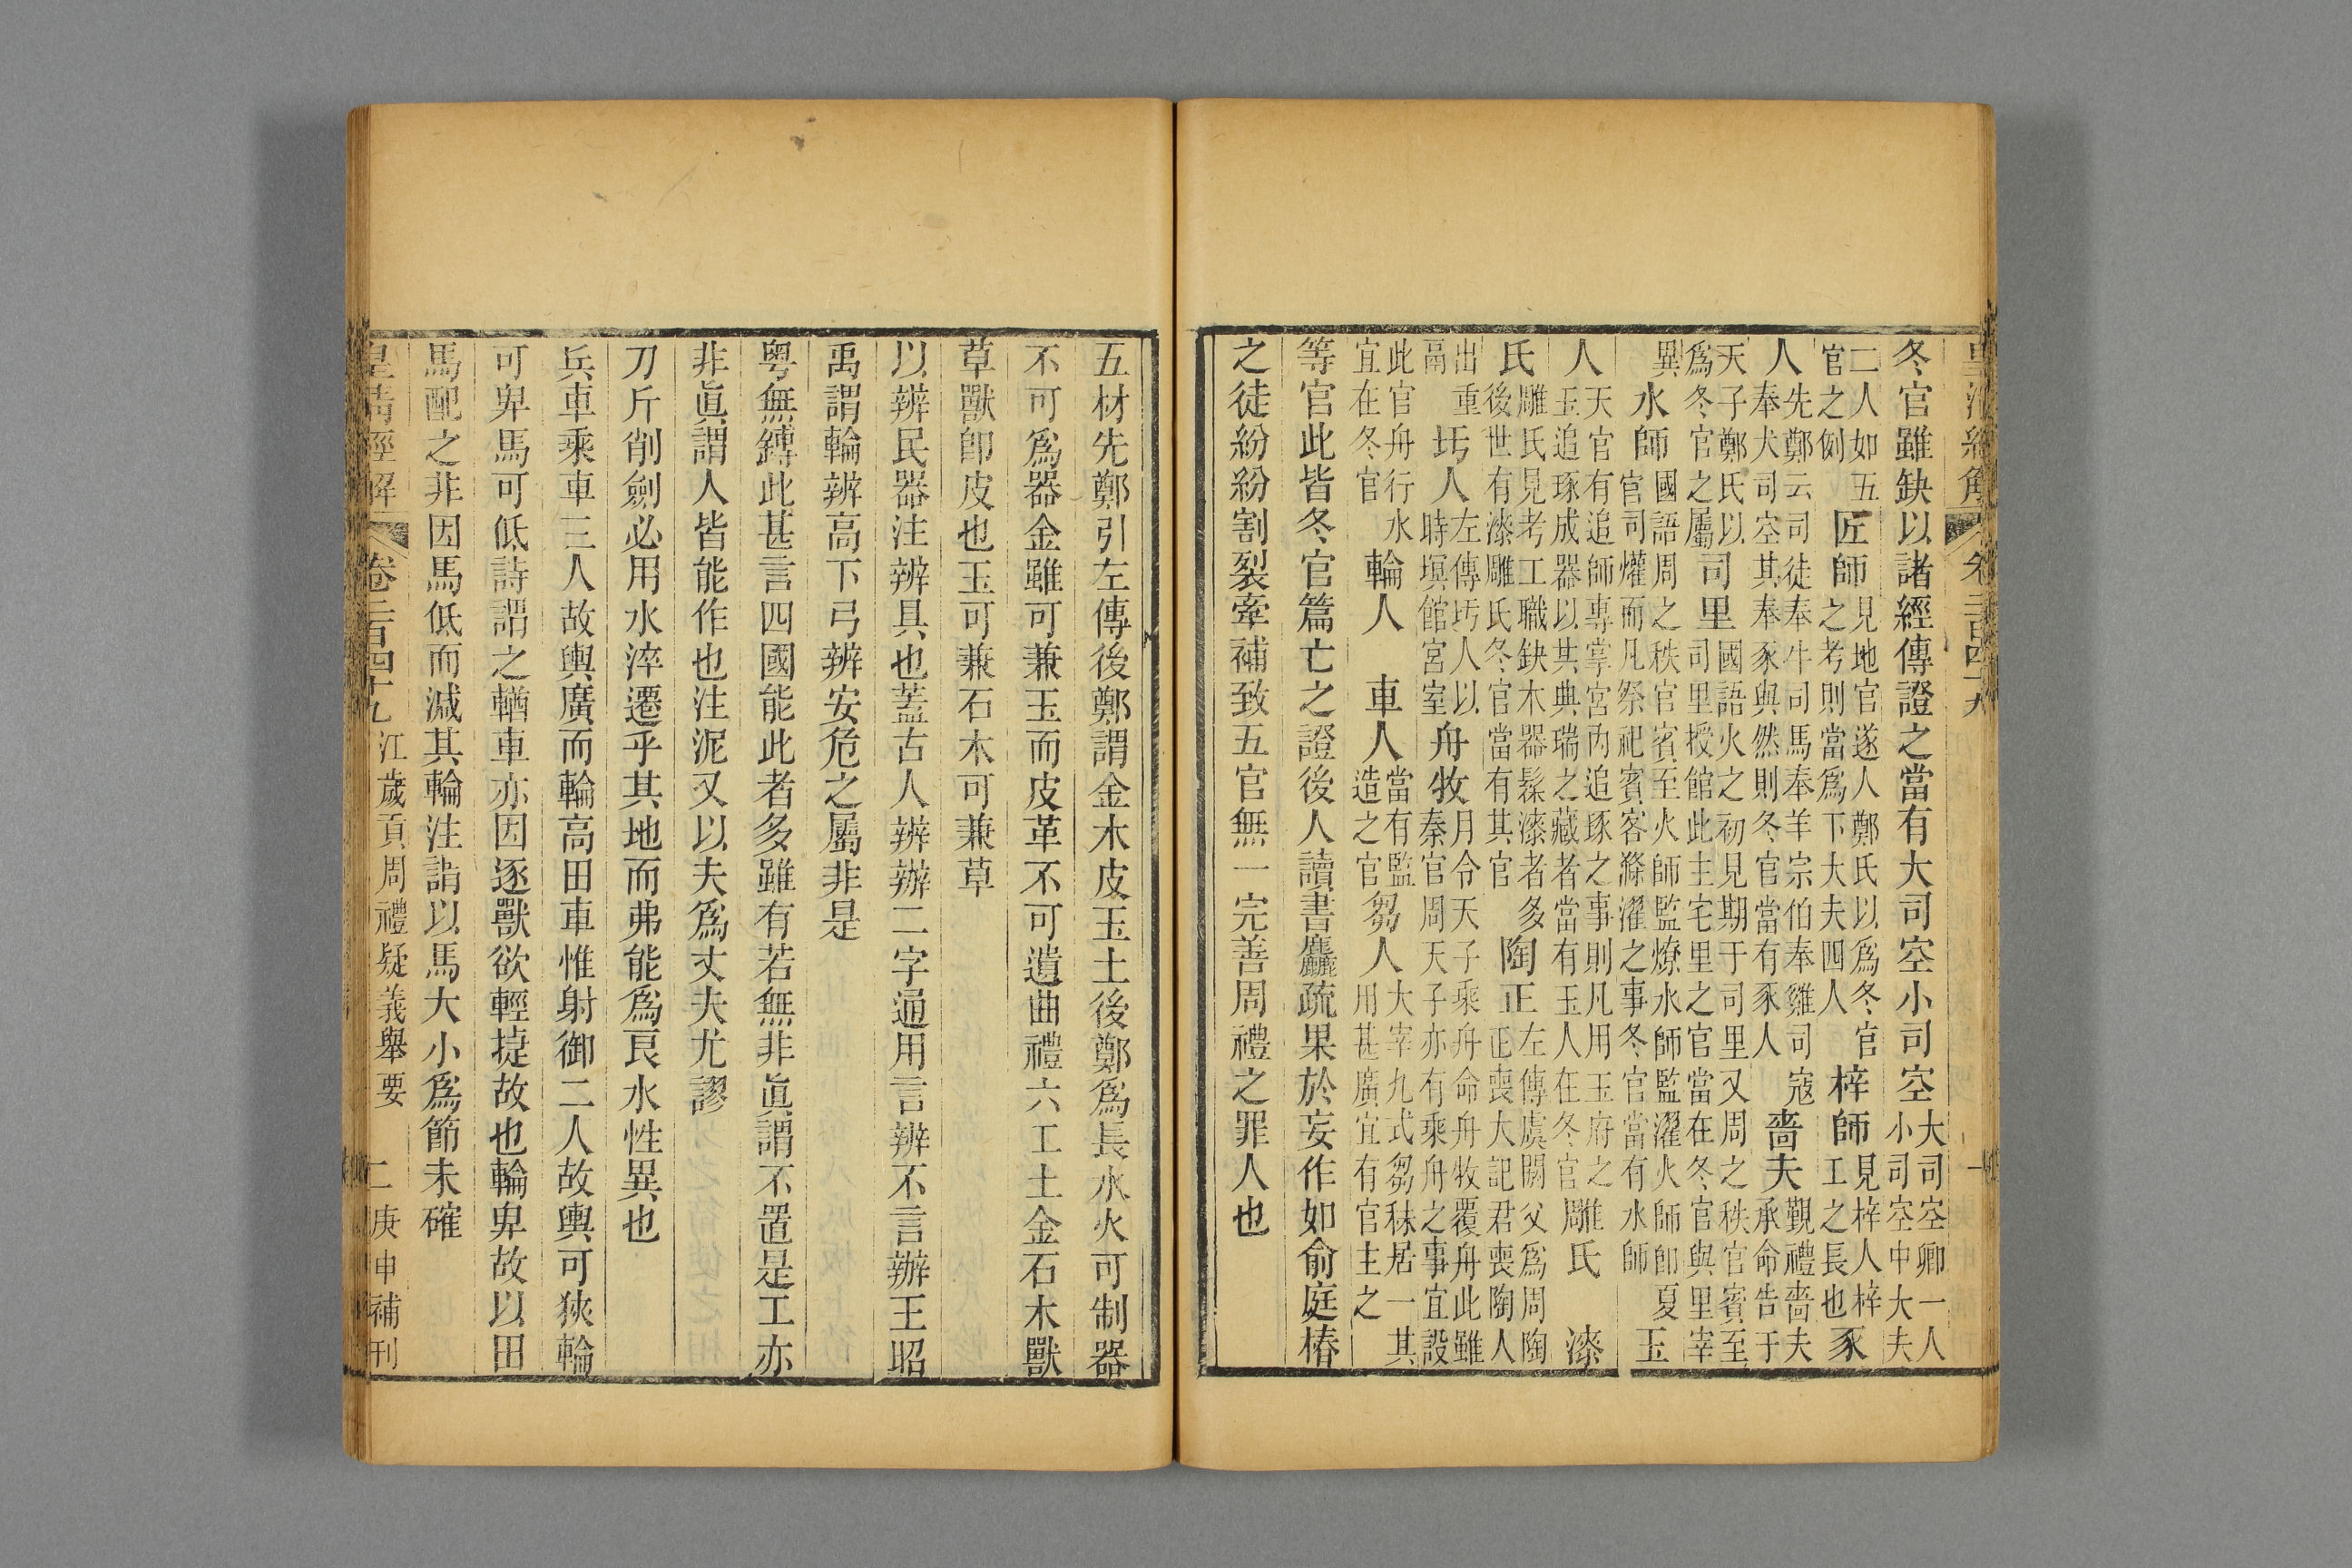 皇清經解 卷二百四十九
冬官雖缺以諸經傳證之當有大司空小司空大司空卿一人小司空中大夫
二人如五官之例匠師見地官遂人鄭氏以爲冬官之考則當爲下大夫四人梓師見梓人梓工之長也豕
人先鄭云司徒奉牛司馬奉羊宗伯奉雞司寇奉犬司空其奉豕與然則冬官當有豕人嗇夫覲禮嗇夫承命告于
天子鄭氏以爲冬官之屬司里國語火之初見期于司里又周之秩官賓至司里授館此主宅里之官當在冬官與里宰
異水師國語周之秩官賓至火師監燎水師監濯火師卽夏官司爟而凡祭祀賓客滌濯之事冬官當有水師玉
人天官有追師專掌宮內追琢之事則凡用玉府之玉追琢成器以其典瑞之藏者當有玉人在冬官雕氏漆
氏雕氏見考工職缺木器髹漆者多後世有漆雕氏冬官當有其官陶正左傳虞閼父爲周陶正喪大記君喪陶人
出重鬲圬人左傳圬人以時塓館宮室舟牧月令天子乘舟命舟牧覆舟此雖秦官周天子亦有乘舟之事宜設
此官舟行水宜在冬官輪人車人當有監造之官芻人大宰九式芻秣居一其用甚廣宜有官主之
等官此皆冬官篇亡之證後人讀書麤疏果於妄作如俞庭椿
之徒紛紛割裂牽補致五官無一完善周禮之罪人也
五材先鄭引左傳後鄭謂金木皮玉土後鄭爲長水火可制器
不可爲器金雖可兼玉而皮革不可遺曲禮六工土金石木獸
草獸卽皮也玉可兼石木可兼草
以辨民器注辨具也蓋古人辨辦二字通用言辨不言辦王昭
禹謂輪辨高下弓辨安危之屬非是
粵無鎛此甚言四國能此者多雖有若無非眞謂不置是工亦
非眞謂人皆能作也注泥又以夫爲丈夫尤謬
刀斤削劍必用水淬遷乎其地而弗能爲良水性異也
兵車乘車三人故輿廣而輪高田車惟射御二人故輿可狹輪
可卑馬可低詩謂之輶車亦因逐獸欲輕捷故也輪卑故以田
馬配之非因馬低而減其輪注謂以馬大小爲節未確
皇清經解 卷二百四十九 江歲貢周禮疑義舉要 二 庚申補刊